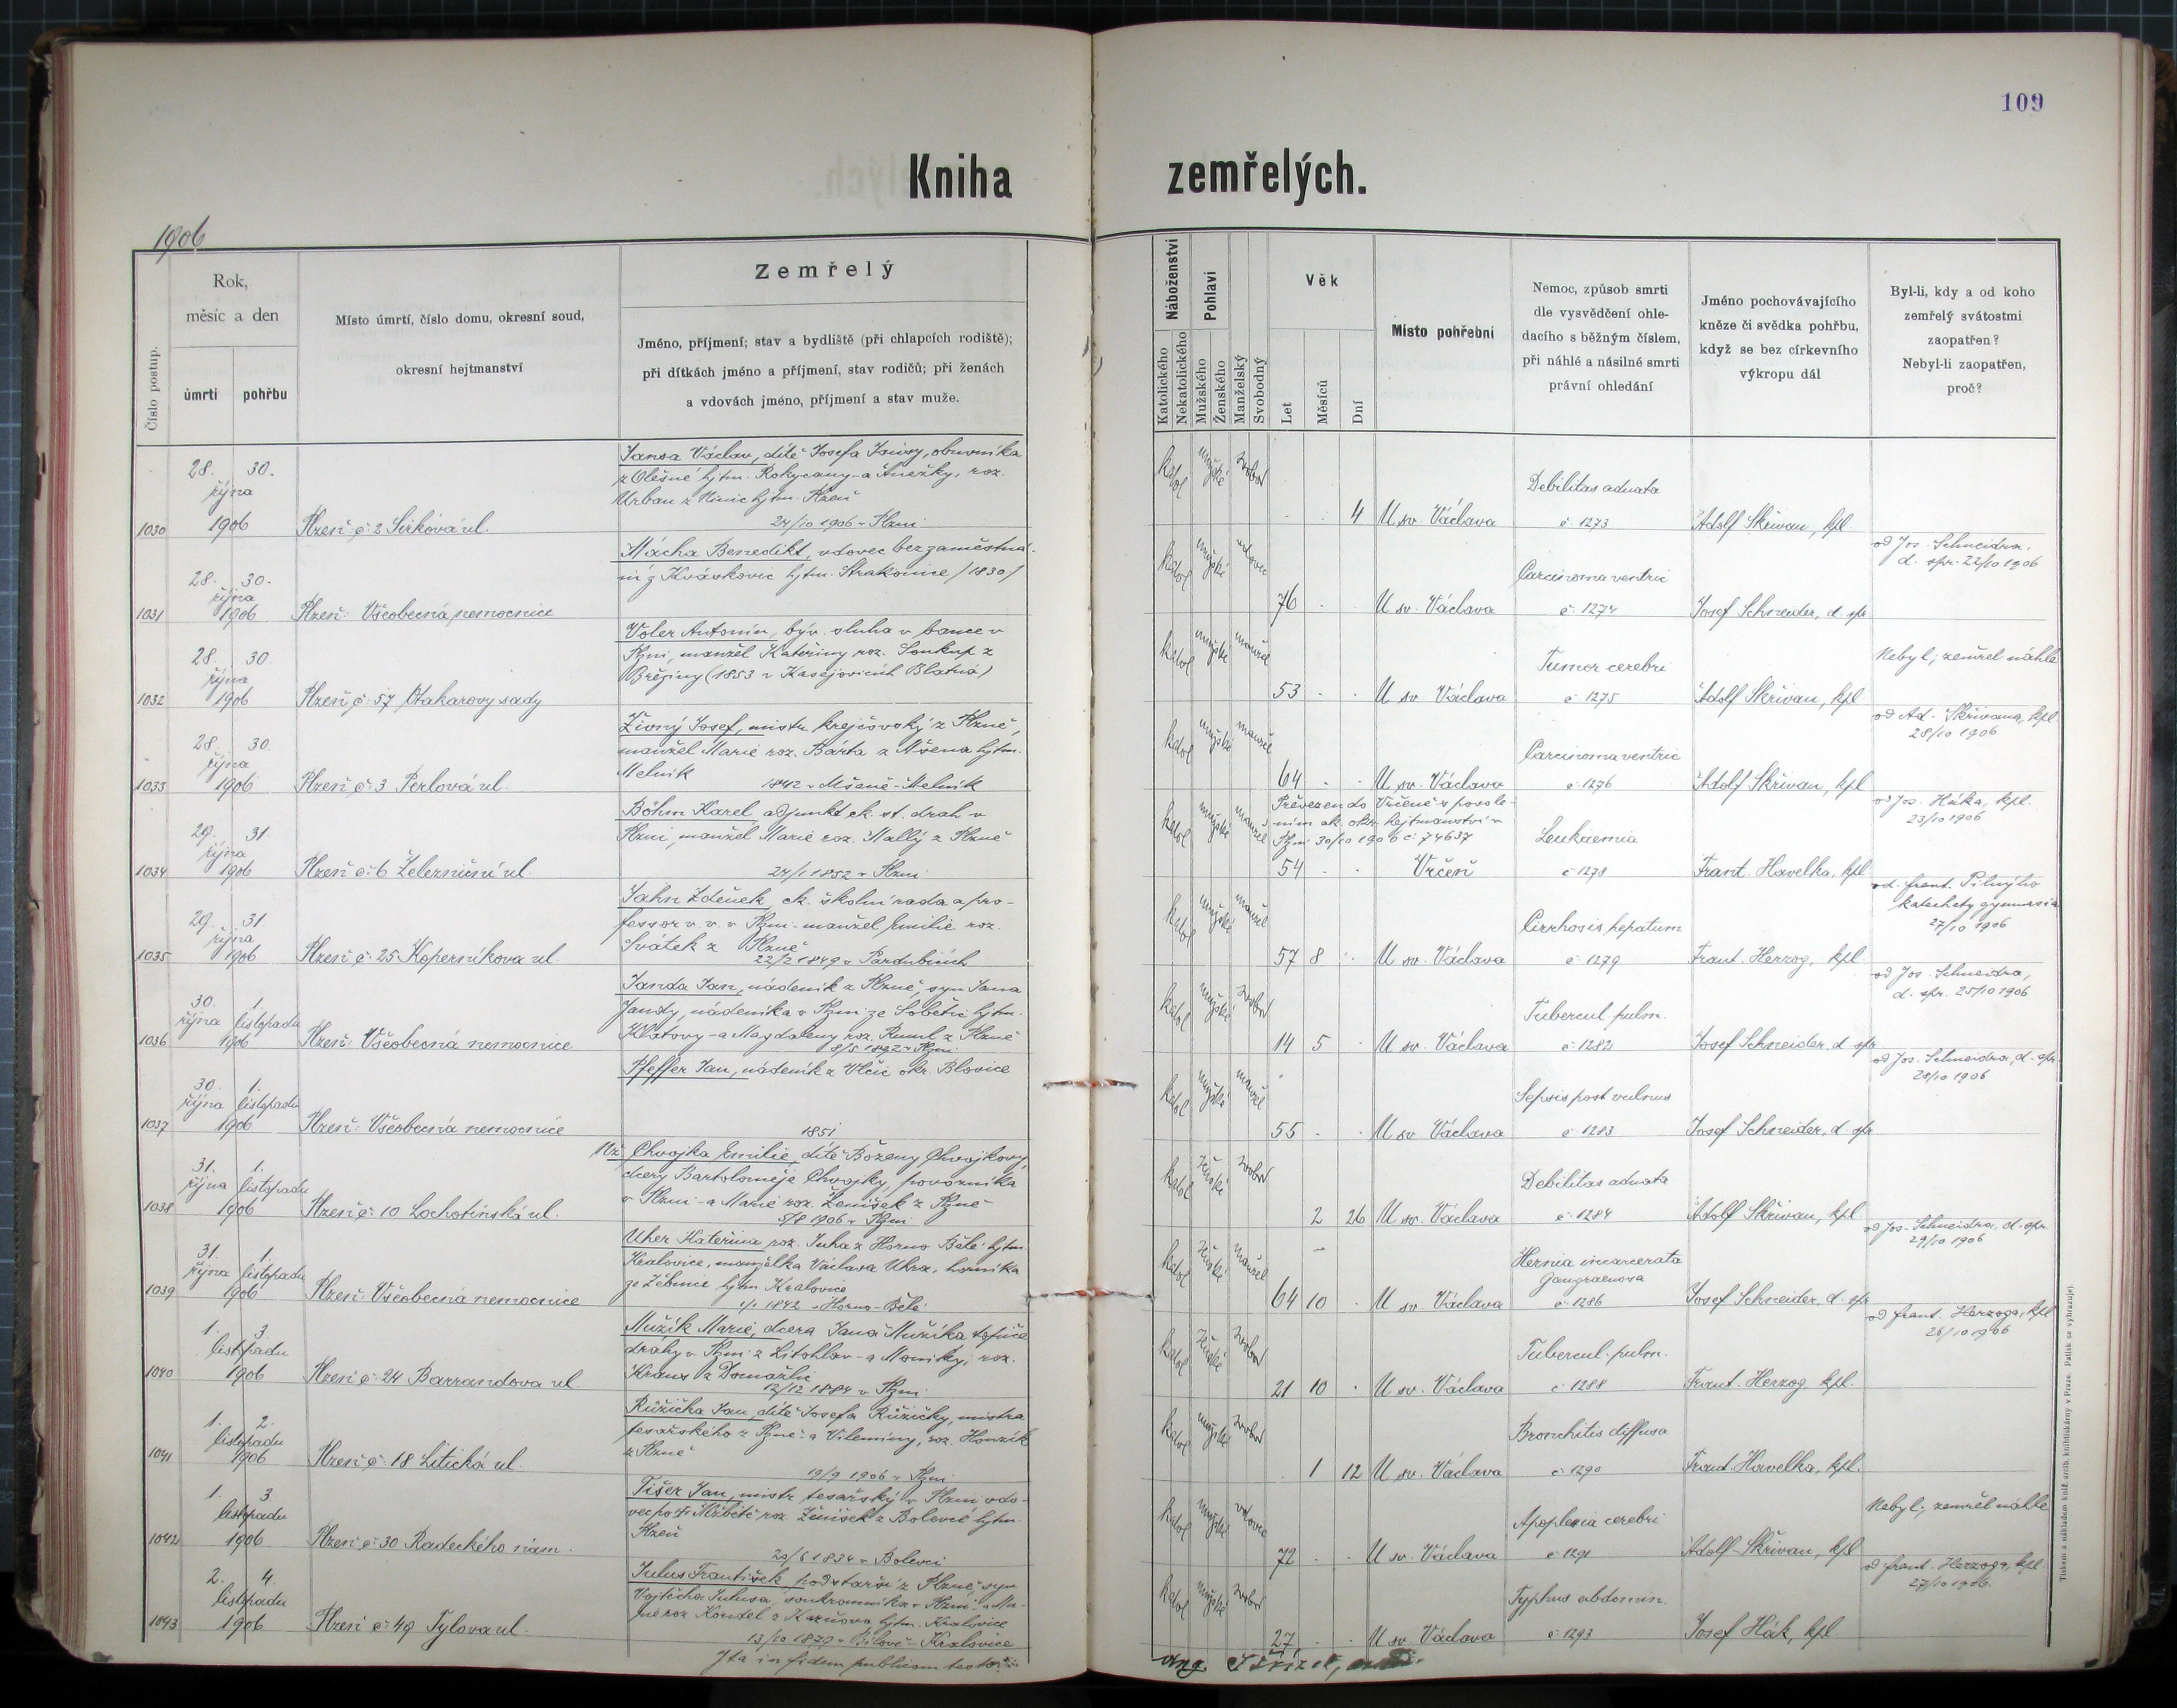 109
Kniha zemřelých.
1906
Číslo postup.
Rok,
měsíc a den
úmrtí
pohřbu
Místo úmrtí, číslo domu, okresní soud,
okresní hejtmanství
Zemřelý
Jméno, příjmení; stav a bydliště (při chlapcích rodiště);
při dítkách jméno a příjmení, stav rodičů; při ženách
a vdovách jméno, příjmení a stav muže.
Náboženství
Katolického
Nekatolického
Pohlaví
Mužského
Ženského
Manželský
Svobodný
Věk
Let
Měsíců
Dní
Místo pohřební
Nemoc, způsob smrti
dle vysvědčení ohle-
dacího s běžným číslem,
při náhlé a násilné smrti
právní ohledání
Jméno pochovávajícího
kněze či svědka pohřbu,
když se bez církevního
výkropu dál
Byl-li, kdy a od koho
zemřelý svátostmi
zaopatřen?
Nebyl-li zaopatřen,
proč?
1030
28. 30.
října
1906
Plzeň č. 2 Sirková ul.
Jansa Václav, dítě Josefa Jansy, obuvníka
z Olešné hjtm. Rokycany a Anežky, roz.
Urban z hjtm. Plzeň
24/10 1906 v Plzni
katol mužské svobod
4
U sv. Václava
Debilitas adnata
č. 1273
Adolf Skřivan, kpl.
1031
28. 30.
října
1906
Plzeň: Všeobecná nemocnice
Mácha Benedikt, vdovec bez zaměstná-
ní z Kváskovic hjtm. Strakonice /1830/
katol mužské vdovec
76
U sv. Václava
Carcinoma ventric
č. 1274
Josef Schneider, d. spr.
od Jos. Schneidra,
d. spr. 22/10 1906
1032
28. 30.
října
1906
Plzeň č. 57 Otakarovy sady
Voler Antonín, býv. sluha v bance v
Plzni, manžel Kateřiny roz. Soukup z
Březiny (1853 v Kasejovicích Blatná)
katol mužské manžel
53
U sv. Václava
Tumor cerebri
č. 1275
Adolf Skřivan, kpl
Nebyl; zemřel náhle
1033
28. 30.
října
1906
Plzeň č. 3 Perlová ul.
Živný Josef, mistr krejčovský z Plzně,
manžel Marie roz. Bárta z Mšena hjtm.
Melník
1842 v Mšeně-Melník
katol mužské manžel
64
U sv. Václava
Carcinoma ventric
č. 1276
Adolf Skřivan, kpl
od Ad. Skřivana, kpl.
28/10 1906
1034
29. 31.
října
1906
Plzeň č. 6 Železniční ul.
Böhm Karel, adjunkt ck. st. drah v
Plzni, manžel Marie roz. Mallý z Plzně
24/1 1852 v Plzni
katol mužské manžel
Převezen do Vrčeně s povole-
ním ck. okr. hejtmanství v
Plzni 30/10 1906 č. 74637
54
Vrčeň
Leukaemia
č. 1278
Frant. Havelka, kpl
od Jos. Háka, kpl.
23/10 1906
1035
29. 31.
října
1906
Plzeň č. 25 Koperníkova ul.
Jahn Zděněk, ck. školní rada a pro-
fessor v. v. v Plzni - manžel Emilie roz.
Svátek z Plzně
22/2 1849 v Pardubicích
katol mužské manžel
57 8
U sv. Václava
Cirrhosis hepatum
č. 1279
Frant. Herzog, kpl.
od frant. Pilného
katechety gymnasia
27/10 1906
1036
30. 1.
října listopadu
1906
Plzeň: Všeobecná nemocnice
Janda Jan, nádeník z Plzně, syn Jana
Jandy, nádeníka v Plzni ze Sobětic hjtm.
Klatovy - a Magdaleny roz. Reml z Plzně
8/5 1892 v Plzni
katol mužské svobod
14 5
U sv. Václava
Tubercul pulm.
č. 1282
Josef Schneider, d. spr
od Jos. Schneidra,
d. spr. 25/10 1906
1037
30. 1.
října listopadu
1906
Plzeň: Všeobecná nemocnice
Pfeffer Jan, nádeník z Vlčic okr. Blovice
1851
katol mužské manžel
55
U sv. Václava
Sepsis post vulnus
č. 1283
Josef Schneider, d. spr
od Jos. Schneidra, d. spr.
28/10 1906
1038
31. 1.
října listopadu
1906
Plzeň č. 10 Lochotínská ul.
Nž. Chvojka Emilie, dítě Boženy Chvojkovy,
dcery Bartoloměje Chvojky, provozníka
v Plzni - a Marie roz. Ženíšek z Plzně
5/8 1906 v Plzni
katol ženské svobod
2 26
U sv. Václava
Debilitas adnata
č. 1284
Adolf Skřivan, kpl
1039
31. 1.
října listopadu
1906
Plzeň: Všeobecná nemocnice
Uher Kateřina roz. Juha z Horno Bělé hjtm.
Kralovice, manželka Václava Uhra, horníka
ze Žebnice hjtm. Kralovice
1/1 1842 v Horno-Bělé
katol ženské manžel
64 10
U sv. Václava
Hernia incarcerata
Gangraenosa
č. 1286
Josef Schneider, d. spr
od Jos. Schneidra, d. spr.
29/10 1906
1040
1. 3.
listopadu
1906
Plzeň č. 24 Barrandova ul.
Mužík Marie, dcera Jana Mužíka topiče
dráhy v Plzni z Litohlav - a Moniky, roz.
Kraus z Domažlic
12/12 1884 v Plzni
katol ženské svobod
21 10
U sv. Václava
Tubercul. pulm.
č. 1288
Frant. Herzog, kpl.
od frant. Herzoga, kpl
26/10 1906
1041
1. 2.
listopadu
1906
Plzeň č. 18 Litická ul.
Růžička Jan, dítě Josefa Růžičky, mistra
tesařského z Plzně - a Vilemíny, roz. Honzík
z Plzně
19/9 1906 v Plzni
katol mužské svobod
1 12
U sv. Václava
Bronchitis diffusa
č. 1290
Frant. Havelka, kpl.
1042
1. 3.
listopadu
1906
Plzeň č. 30 Radeckého nám.
Tišer Jan, mistr tesařský v Plzni vdo-
vec po † Alžbětě roz. Ženíšek z Bolevce hjtm.
Plzeň
20/6 1834 v Bolevci
katol mužské vdovec
72
U sv. Václava
Apoplexia cerebri
č. 1291
Adolf Skřivan, kpl
Nebyl; zemřel náhle
1043
2. 4.
listopadu
1906
Plzeň č. 49 Tylova ul.
Julus František, podstarší z Plzně, syn
Vojtěcha Julusa, soukromníka v Plzni a Ma-
rie roz Kondel z Kaznova hjtm. Kralovice
13/10 1879 v Bílově - Kralovice
katol mužské svobod
27
U sv. Václava
Typhus abdomin.
č. 1293
Josef Hák, kpl.
od frant. Herzoga, kpl.
27/10 1906.
Ita in fidem publicam testor:
Tiskem a nákladem kníž. arcib. knihtiskárny v Praze. Patisk se vyhrazuje).